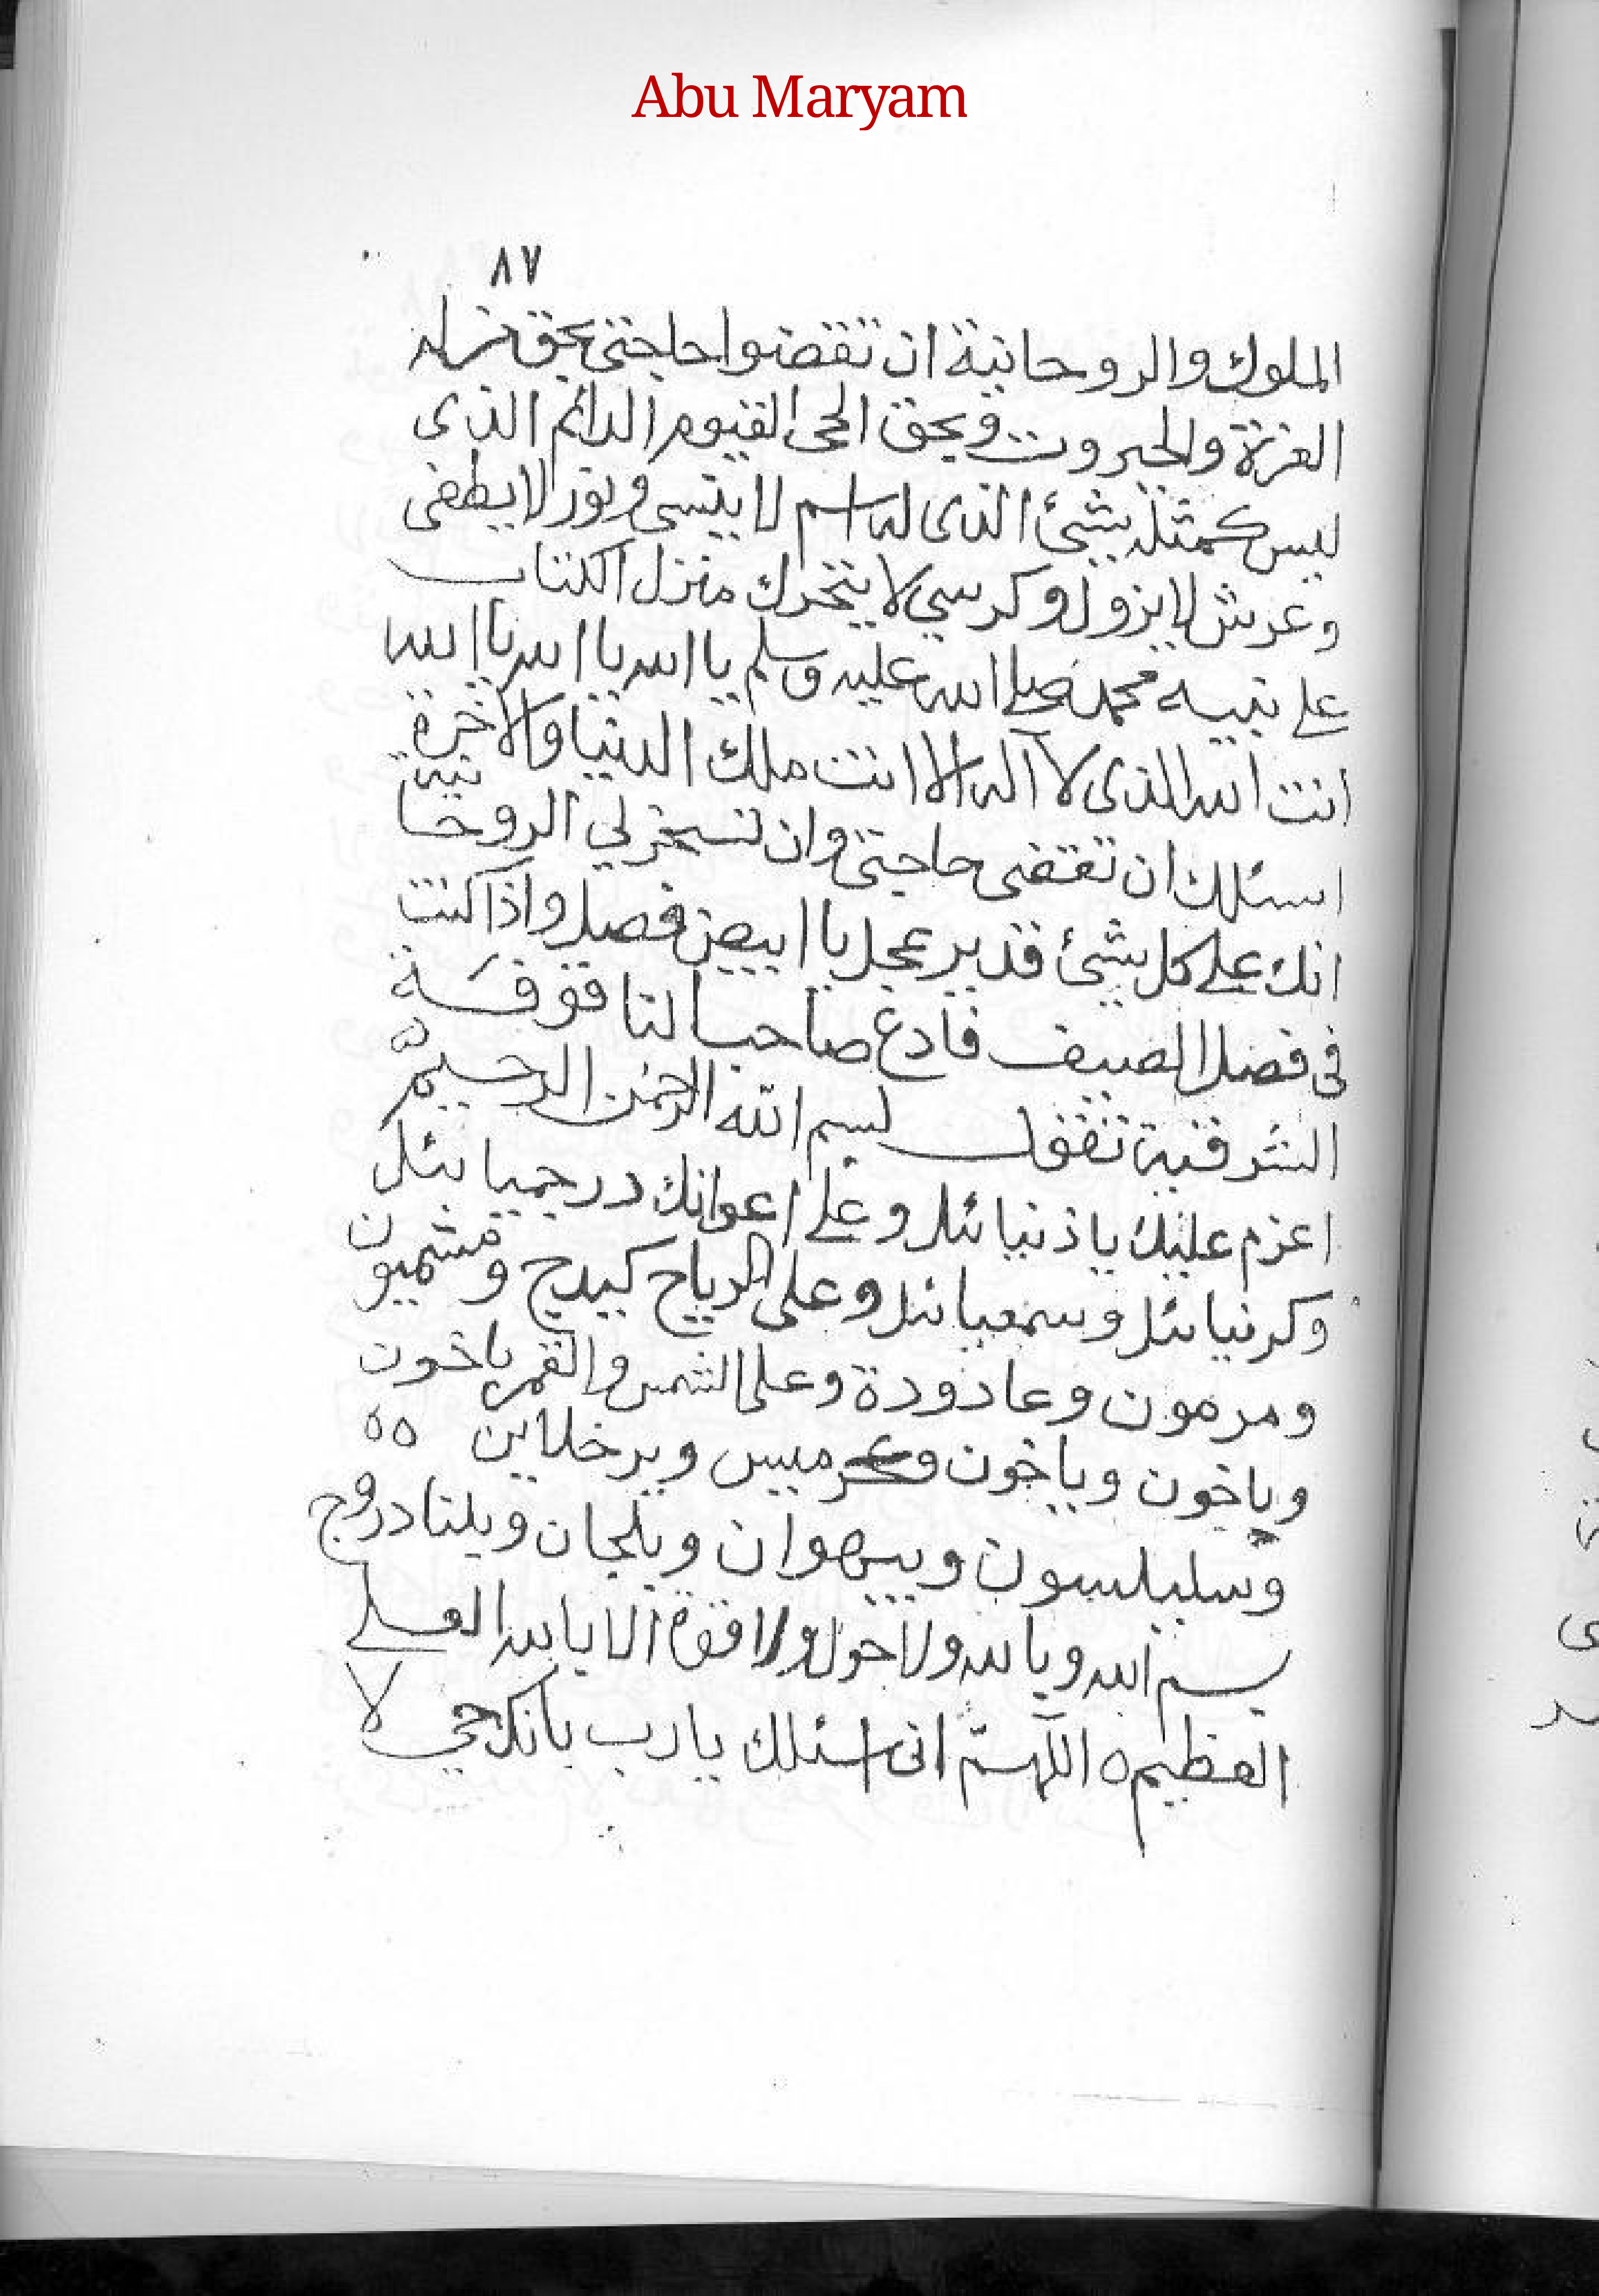 Abu Maryam
٨٧
الملوك والروحانية ان تقضوا حاجتى بحق من له
العزة والجبروت وبحق الحى القيوم الدائم الذى
ليس كمثله شئ الذى له اسم لا ينسى ونور لا يطفى
وعرش لا يزول وكرسي لا يتحرك منزل الكتاب
على نبيه محمد صلى الله عليه وسلم يا الله يا الله يا الله
انت الله الذى لا آله الا انت ملك الدنيا والاخرة
اسئلك ان تقضى حاجتى وان تسخر لي الروحانية
انك على كل شئ قدير عجل يا ابيض فصل واذا كنت
فى فصل الصيف فادع صاحب النا قوفسة
الشرقية تقول بسم الله الرحمن الرحيم ه
اعزم عليك يا ذنيائل وعلى اعوانك درجميائل
وكرنيائل وسمعيائل وعلى الرياح كيدح ومشميون
ومرمون وعاذودة وعلى الشمس والقمر باخون
وياخون وياخون وميس وبرخلاين ٥٥
وسليلسون وبيهوان وبلجان ويلتادروج
بسم الله وبالله ولا حول ولا قوة الا بالله العلي
العظيم ٥ اللهم انى اسئلك يا رب بانك حي لا